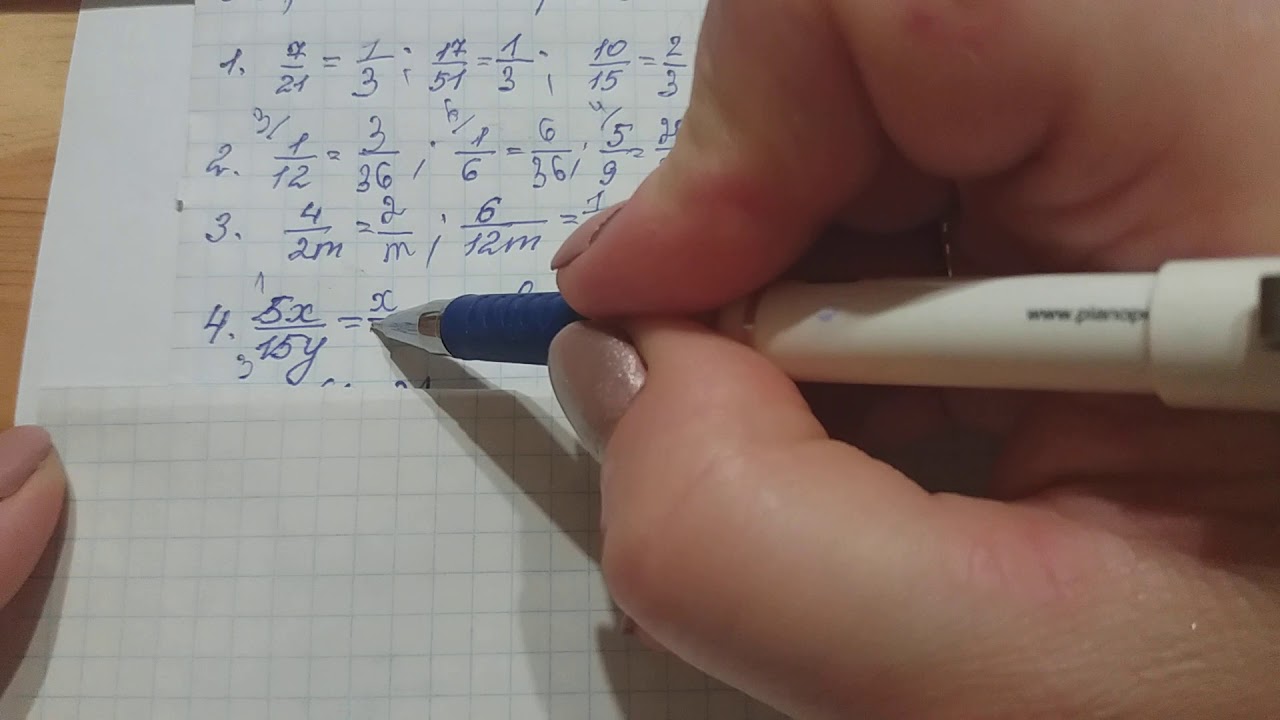 1. 7/21 = 1/3 ; 17/51 = 1/3 ; 10/15 = 2/3
2. 3/ 1/12 = 3/36 ; 6/ 1/6 = 6/36 ; 4/ 5/9 =
3. 4/2m = 2/m ; 6/12m = 1
4. 5x/15y = x 1 3
www.pianop